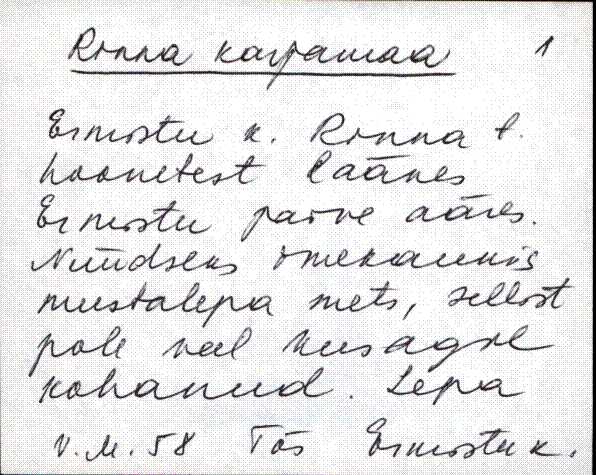 Rõnna karjamaa 1
Ermistu k. Rõnna t.
hoonetest läänes
Ermistu järve ääres.
Nüüdseks imekaunis
mustalepa mets, sellist
pole veel kusagil
kohanud. Lepa
V.M. 58 Tõs Ermistu k.